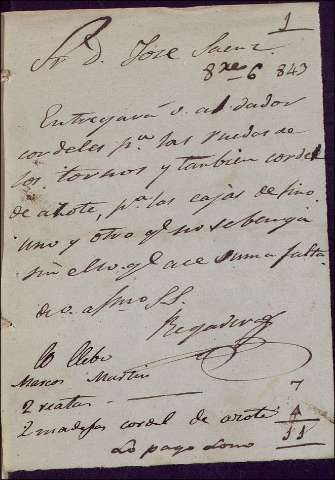 1
Sr. D. Jose Saenz
8re 6 843
Entregará v. al dador
cordeles pa. las ruedas de
los tornos y tanbien cordel
de asote, pa. las cajas de fino
uno y otro qe. no se benga
sin ello qe. ace suma falta
de v. affmo SS.
Regadera
lo llebo
Marcos Martin
2 reatas — 7
2 madejas cordel de asote 4
11
Lo pago Lono